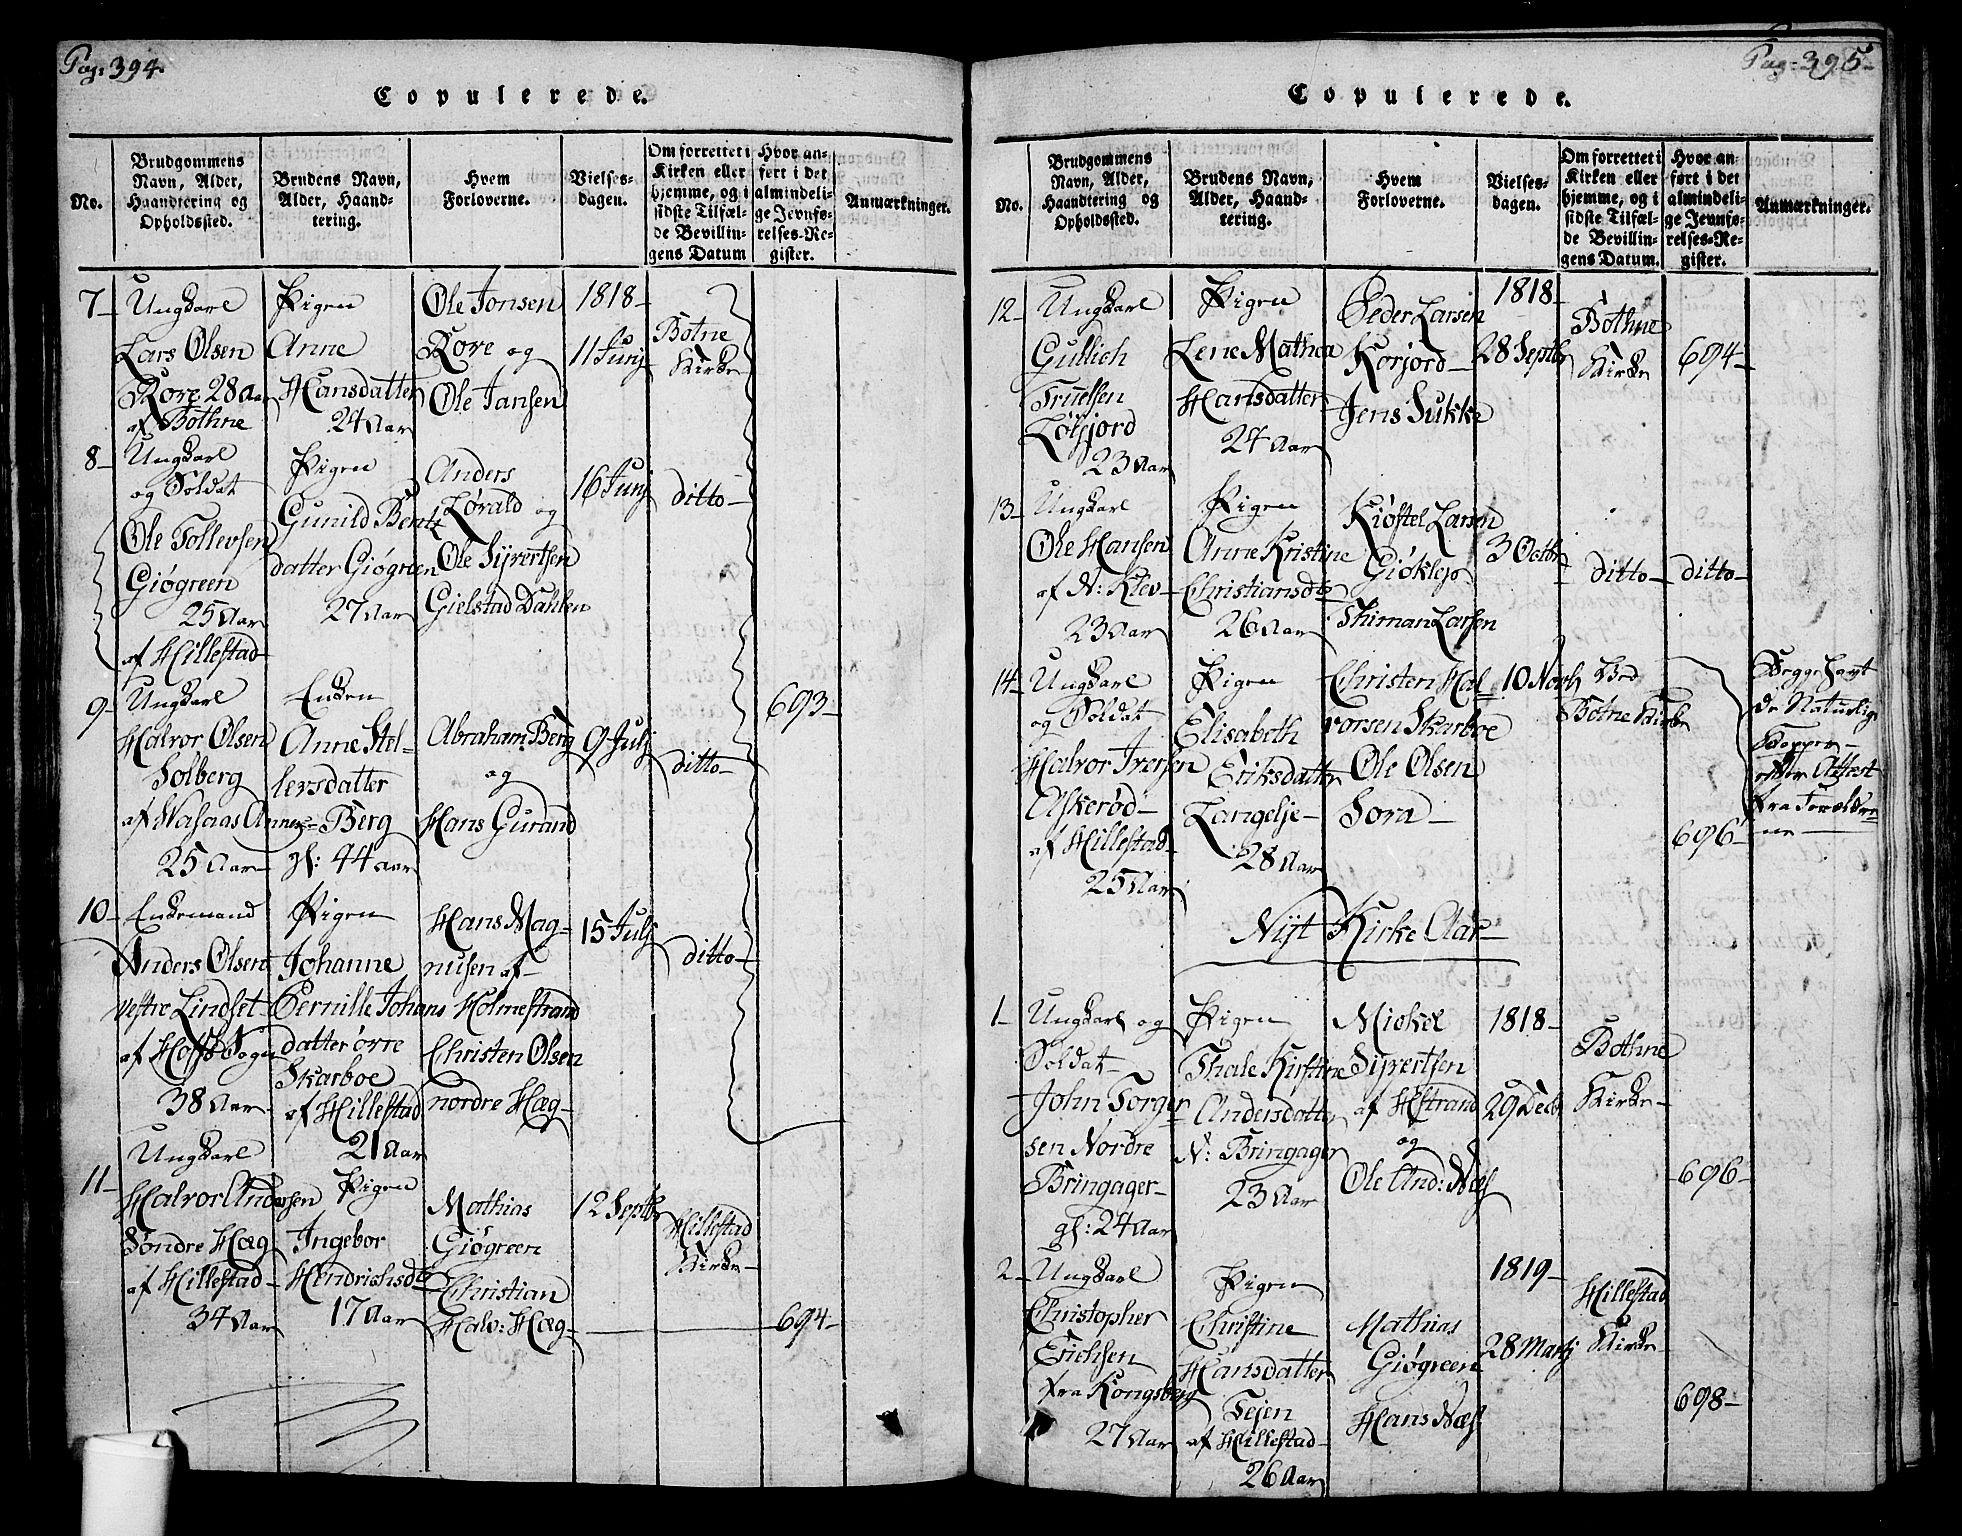 Pag: 394.
Copulerede.
No.
Brudgommens Navn, Alder, Haandtering og Opholdssted.
Brudens Navn, Alder, Haandtering.
Hvem Forloverne.
Vielsesdagen.
Om forrettet i Kirken eller hjemme, og i sidste Tilfælde Bevillingens Datum
Hvor anført i det almindelige Jevnførelses-Register.
Anmærkninger.
7-
Ungkarl
Lars Olsen
Rore 28 Aar
af Bothne
Pigen
Anne
Hansdatter
24 Aar
Ole Jonsen
Rore og
Ole Jansen
1818-
11 Junj
Botne
Kirke
8-
Ungkarl
og Soldat
Ole Tollevsen
Giøgreen
25 Aar
af Hillestad
Pigen
Gunild Bent
datter Giøgreen
27 Aar
Anders
Lørald og
Ole Syvertsen
Gielstad Dahlen
16 Junj
ditto-
9-
Ungkarl
Halvor Olsen
Solberg
af Wasaas Annex
25 Aar
Enken
Anne Stel-
lersdatter
Berg
gl: 44 aar
Abraham Berg
og
Hans Gurand
9 Julj
ditto-
693-
10-
Enkemand
Anders Olsen
vestre Lindset
af Hoffs Sogn
38 Aar
Pigen
Johanne
Pernille Johans
datter ørre
Skarboe
af Hillestad
21 Aar
Hans Mag-
nusen af
Holmestrand
Christen Olsen
nordre Hæg-
15 Julj
ditto-
11-
Ungkarl
Halvor Andersen
Søndre Hæg
af Hillestad-
34 Aar
Pigen
Ingebor
Hendrichsdtr
17 Aar
Mathias
Giøgreen
Christian
Halv: Hæg-
12 Septbr
Hillestad
Kirke-
694-
Pag: 395-
Copulerede.
No.
Brudgommens Navn, Alder, Haandtering og Opholdssted.
Brudens Navn, Alder, Haandtering.
Hvem Forloverne.
Vielsesdagen.
Om forrettet i Kirken eller hjemme, og i sidste Tilfælde Bevillingens Datum.
Hvor anført i det almindelige Jevnførelses-Register.
Anmærkninger.
12-
Ungkarl
Gullich
Truelsen
23 Aar
Pigen
Lene Mathea
Hansdatter
24 Aar
Peder Larsen
Korjord-
Jens Sukke
1818-
28 Septbr
Bothne
Kirke
694-
13-
Ungkarl
Ole Hansen
af N: Klev-
23 Aar
Pigen
Anne Kristine
Christiansdtr
26 Aar
Kiøstel Larsen
Giøklep
Thiman Larsen
3 Octbr
ditto-
ditto-
14-
Ungkarl
og Soldat
Halvor Iversen
Askerød-
af Hillestad-
25 Aar
Pigen
Elisabeth
Eriksdatter
Langelje-
28 Aar
Christen Hal-
vorsen Skarboe
Ole Olsen
Sora-
10 Novb
Ved
Botne Kirke
696-
Begge havt
de Naturlige
Kopper-
efter Attest
fra Forældre-
ne-
Nyt Kirke Aar-
1-
Ungkarl og
Soldat-
John Torger
sen Nordre
Bringager-
gl: 24 Aar
Pigen
Thale Kirstine
Andersdatter
N: Bringager
23 Aar
Mickel
Syvertsen
af Hstrand
og
Ole And: Næs
1818-
29 Decb
Bothne
Kirke-
696-
2-
Ungkarl
Christopher
Erichsen
fra Kongsberg
27 Aar
Pigen
Christine
Hansdatter
Tejen
af Hillestad-
26 Aar
Mathias
Giøgreen
Hans Næs
1819-
28 Martj
Hillestad
Kirke-
698-